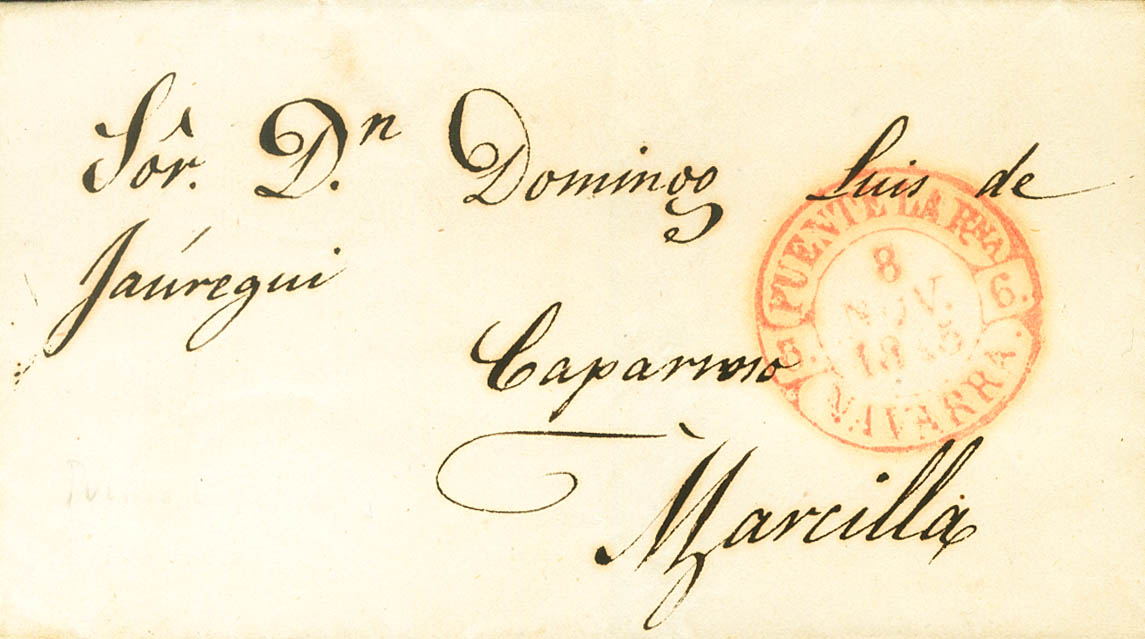 Sôr. D.ⁿ Domingo Luis de
Jaúregui
Caparroso
Marcilla
PUENTE LA Rᴺᴬ
6.
8
NOV.
NAVARRA.